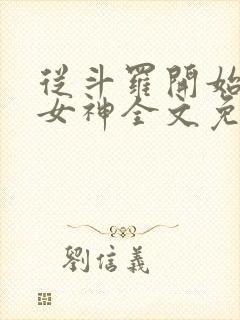 從斗羅開始
女神全文免
劉信義